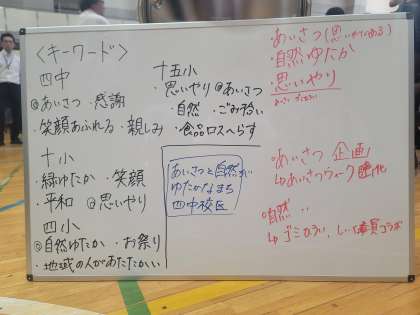 〈キーワード〉
四中
◎あいさつ ・感謝
・笑顔あふれる ・親しみ
十小
・緑ゆたか ・笑顔
・平和 ◎思いやり
四小
◎自然ゆたか ・お祭り
・地域の人があたたかい
十五小
・思いやり ◎あいさつ
・自然 ・ごみ拾い
・食品ロスへらす
あいさつと自然が
ゆたかなまち
四中校区
あいさつ(思いやりのある)
・自然ゆたか
・思いやり
・あいさつ 企画
↳あいさつウィーク
◎自然
↳ゴミひろい、
コラボ